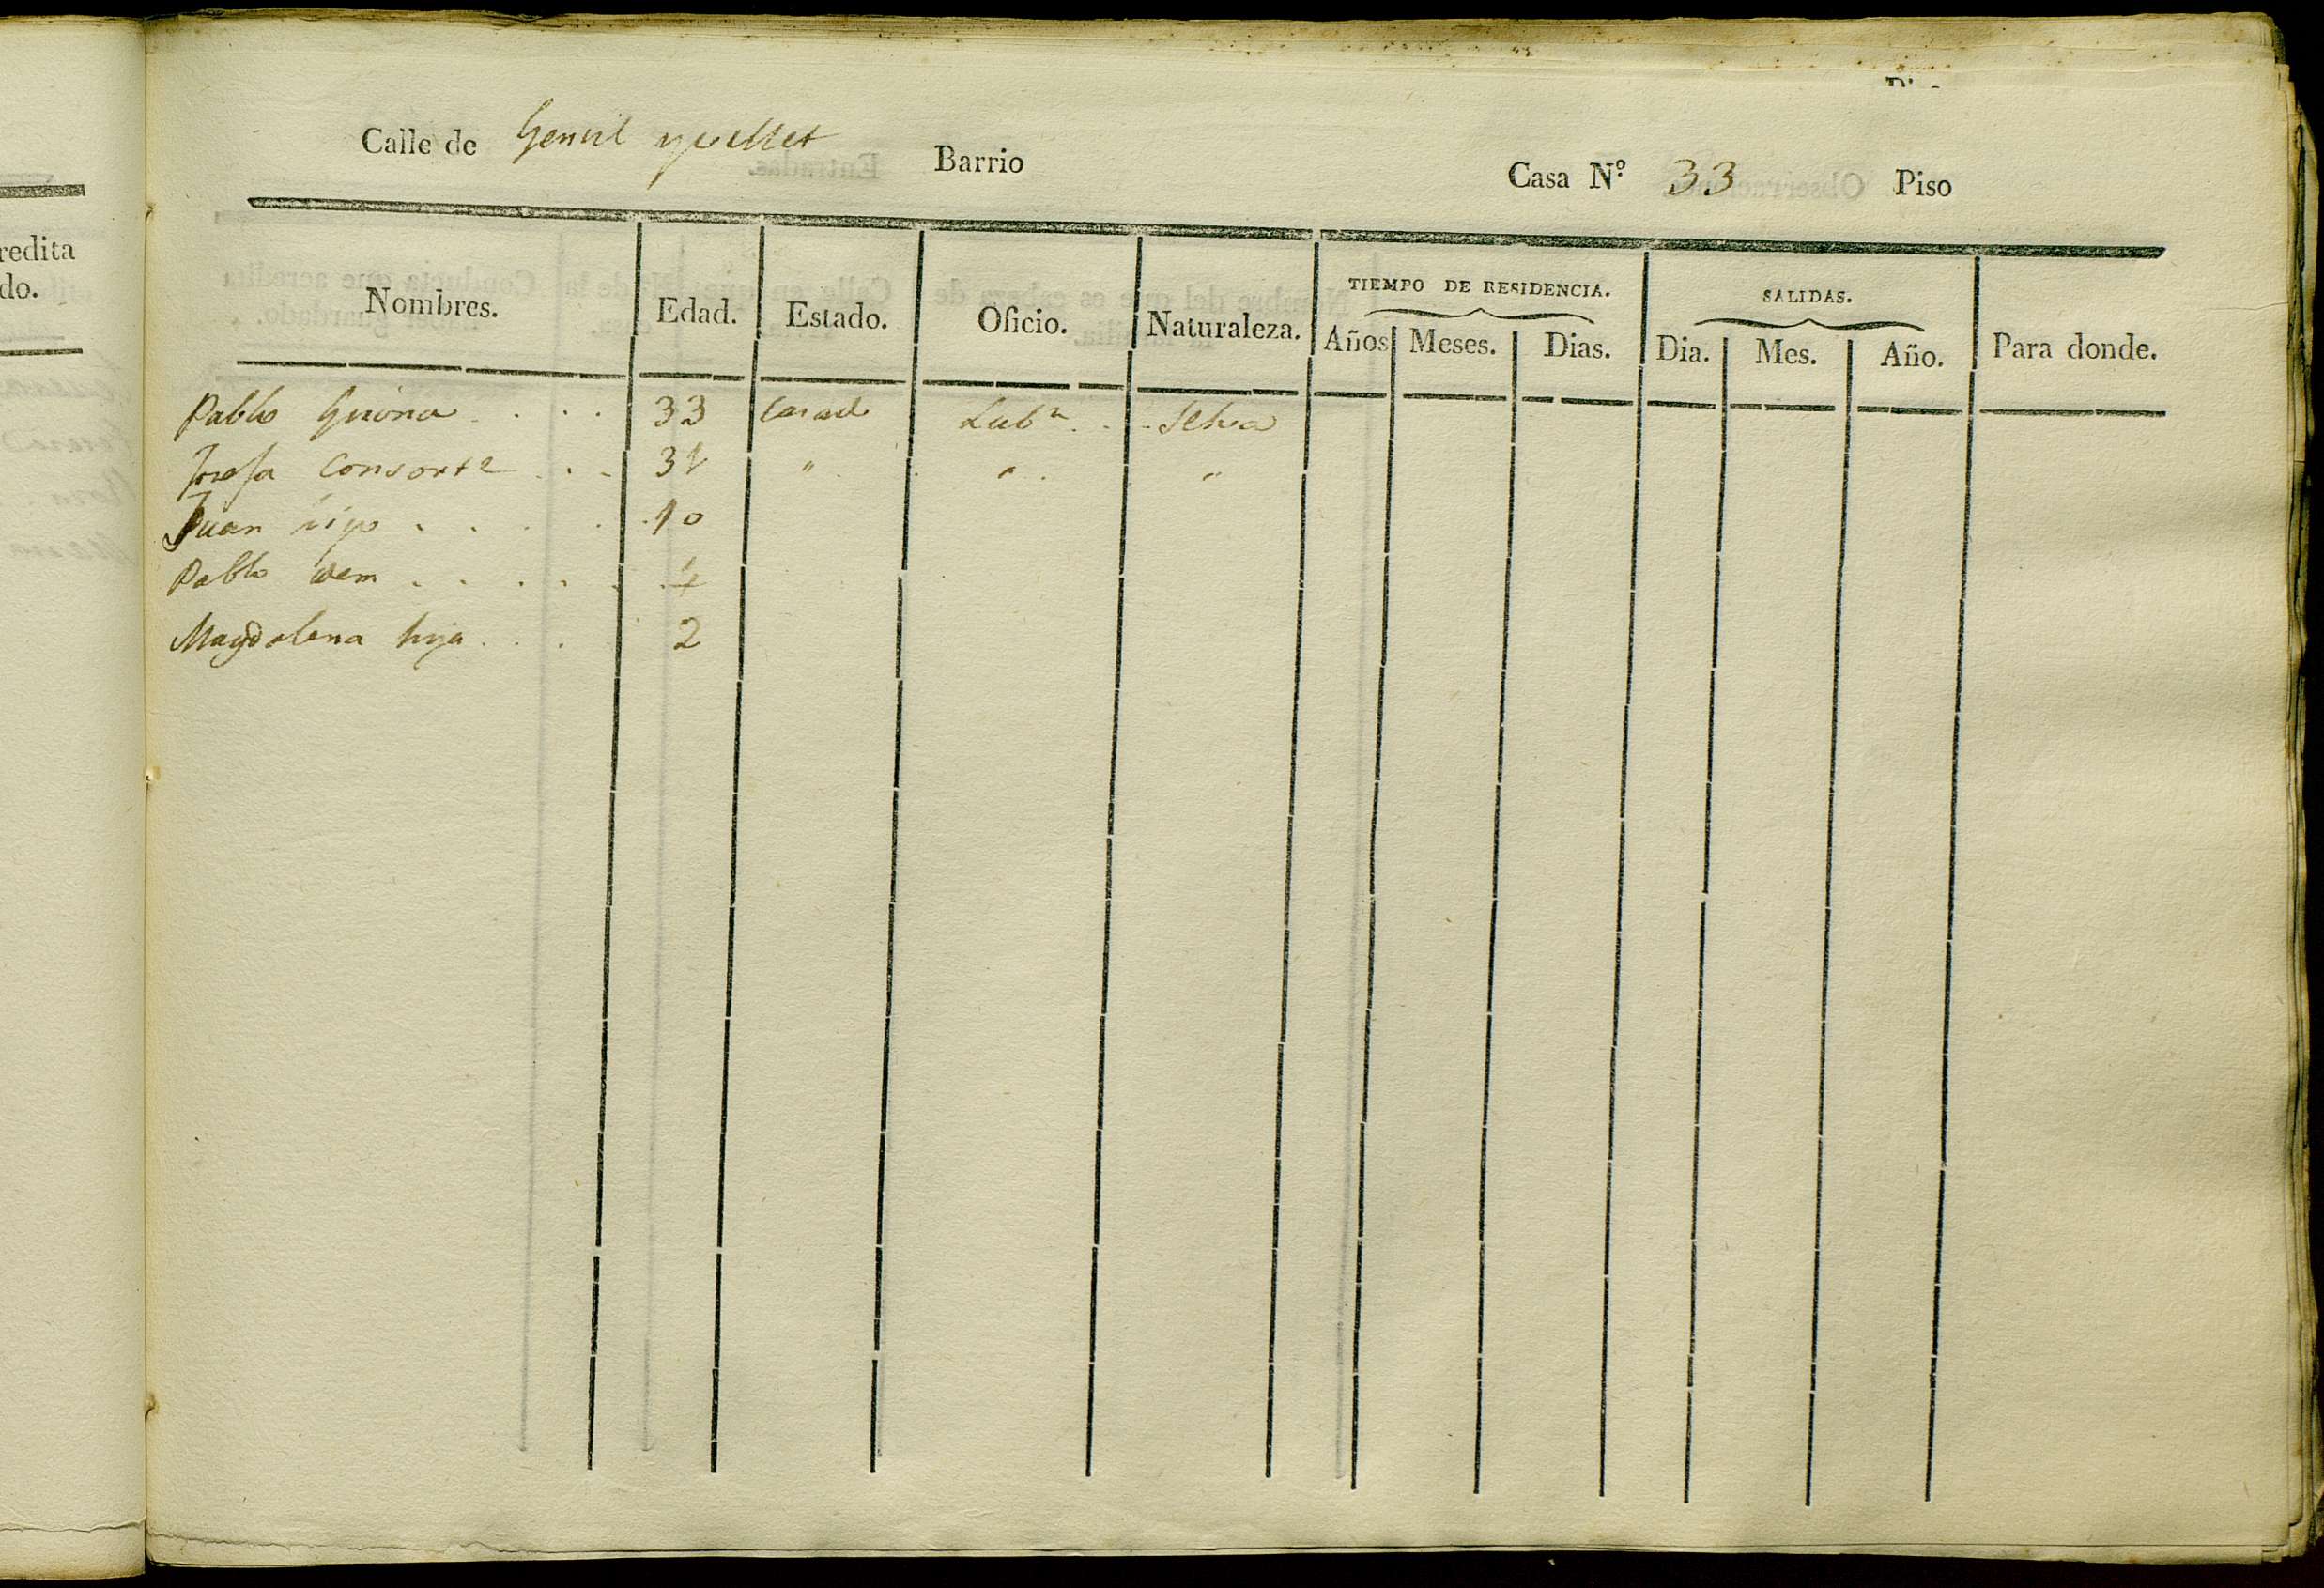 redita
do.
Calle de Barrio Casa N.º 33 Piso
Nombres. Edad. Estado. Oficio. Naturaleza. TIEMPO DE RESIDENCIA. Años Meses. Dias. SALIDAS. Dia. Mes. Año. Para donde.
Pablo . . . 33 Casado Labr. . . Selva
Josefa Consorte . . 31 " . . " . "
Juan hijo . . . . . 10
Pablo idem . . . . .
Magdalena hija . . . 2